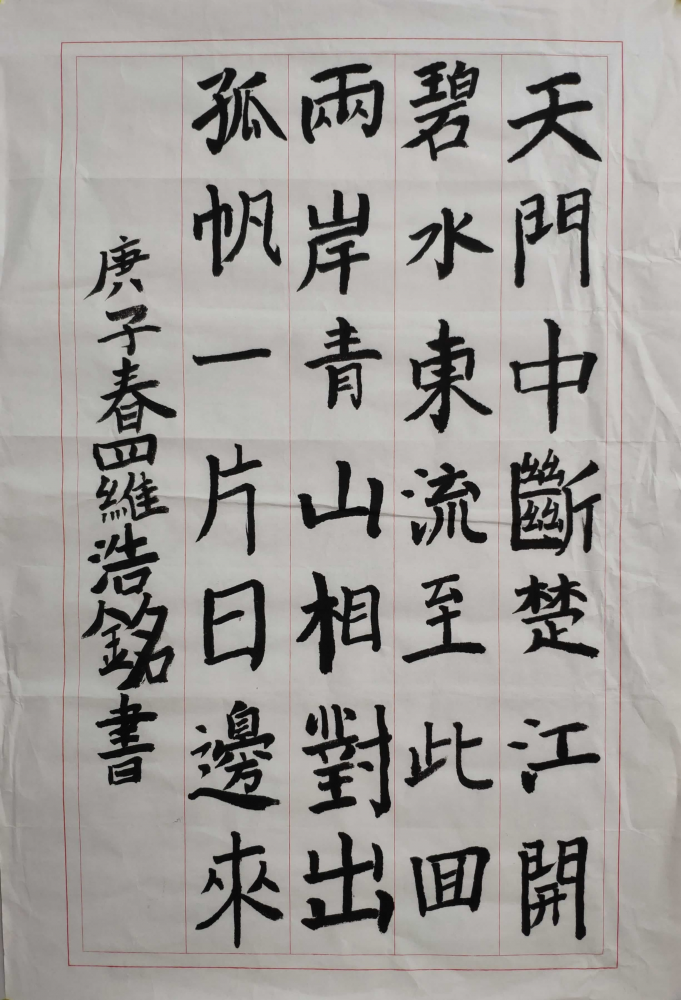 天門中斷楚江開
碧水東流至此回
兩岸青山相對出
孤帆一片日邊來
庚子春四維浩銘書